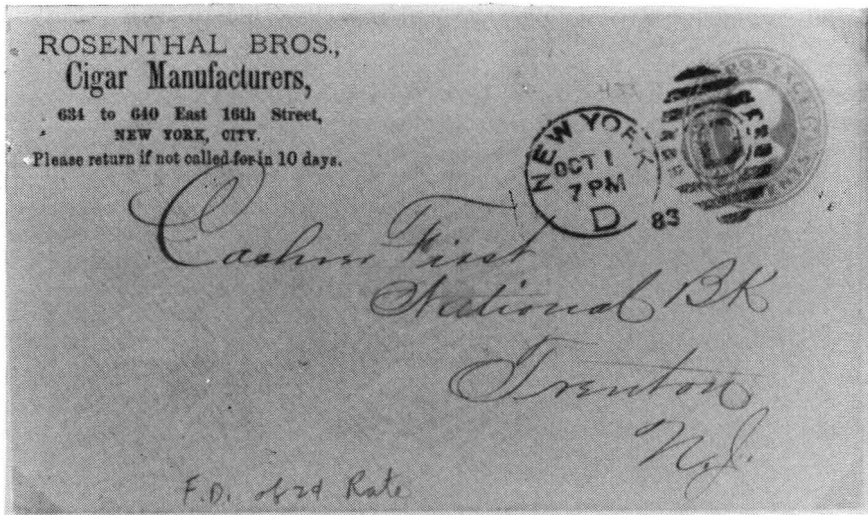 ROSENTHAL BROS.,
Cigar Manufacturers,
634 to 640 East 16th Street,
NEW YORK, CITY.
Please return if not called for in 10 days.
433
POSTAGE
CENTS
NEW YORK
OCT 1
7 PM
D 83
D
Cashier First
National BK
Trenton
N.J.
F.D. of 2¢ Rate